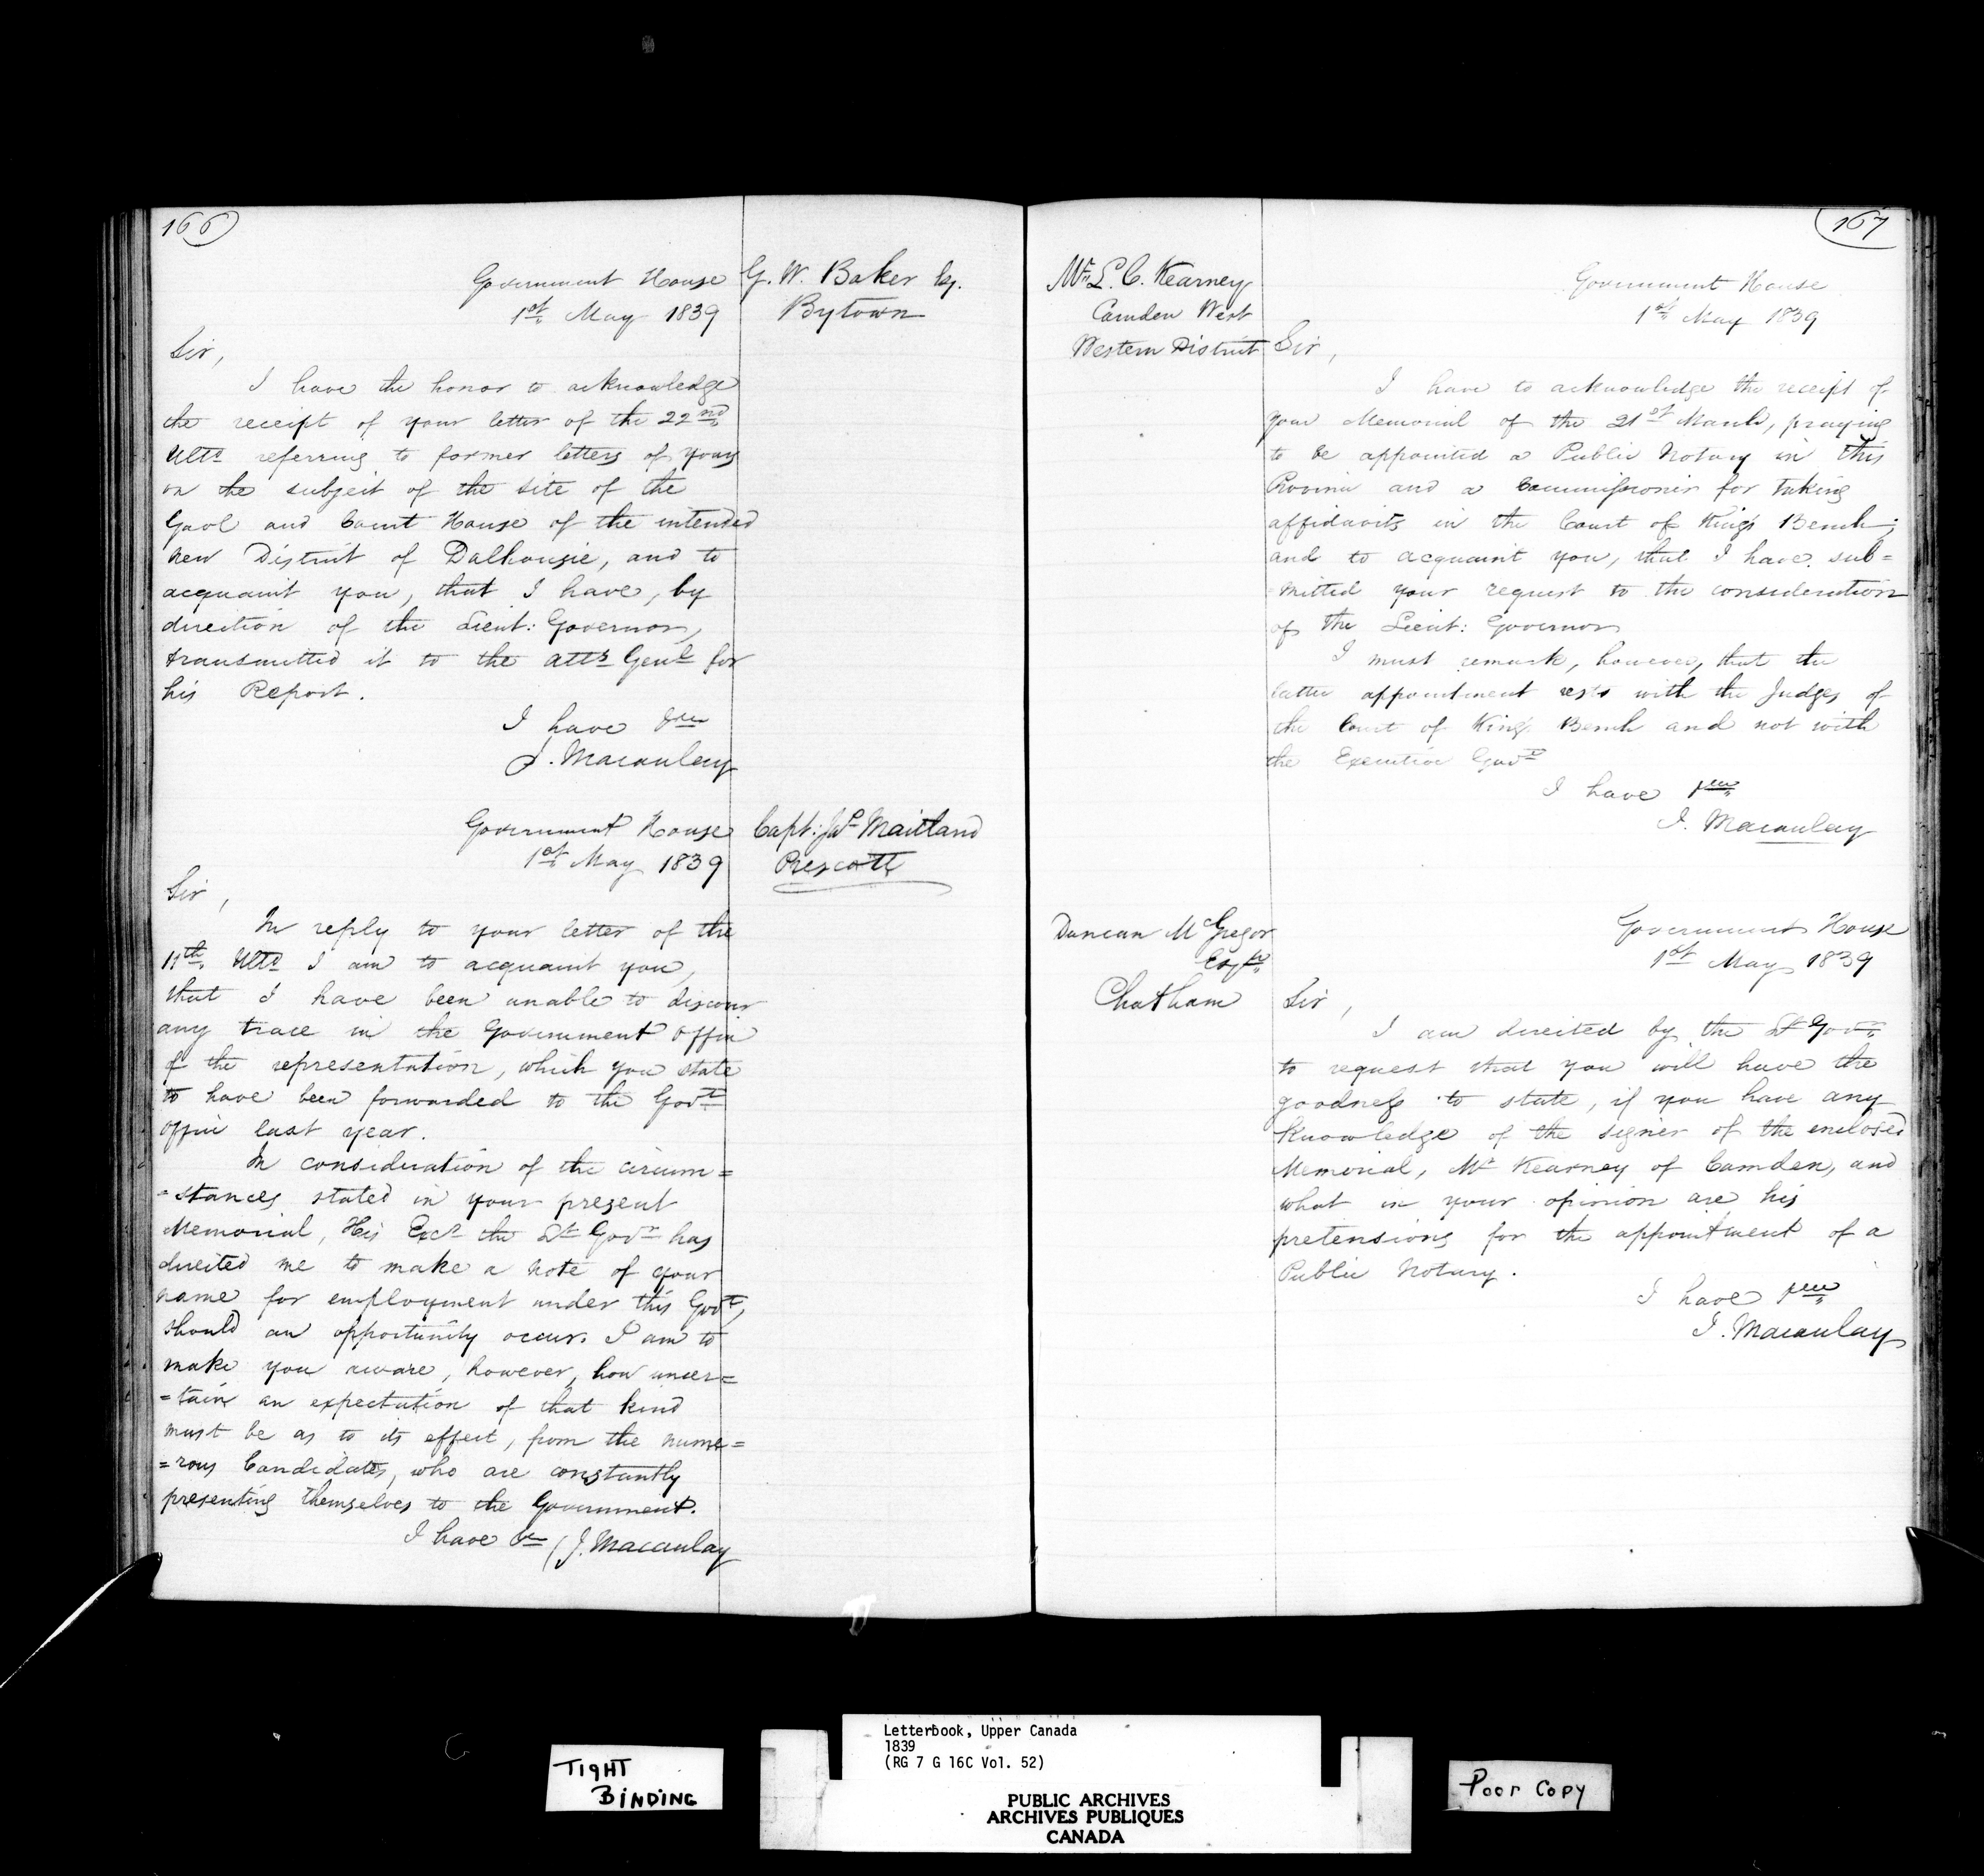 166
Government House
1st May 1839
G. W. Baker Esq.
Bytown
Sir,
I have the honor to acknowledge
the receipt of your letter of the 22nd
Ulto referring to former letters of yours
on the subject of the site of the
Gaol and Court House of the intended
new District of Dalhousie, and to
acquaint you, that I have, by
direction of the Lieut: Governor,
transmitted it to the Atty Genl for
his Report.
I have &c
J. Macaulay
Government House
1st May 1839
Capt: Maitland
Prescott
Sir,
In reply to your letter of the
11th Ulto I am to acquaint you,
that I have been unable to discover
any trace in the Government Office
of the representation, which you state
to have been forwarded to the Govt
Office last year.
In consideration of the circum=
=stances stated in your present
Memorial, His Excy the Lt Govr has
directed me to make a note of your
name for employment under this Govt,
should an opportunity occur. I am to
make you aware, however, how uncer=
=tain an expectation of that kind
must be as to its effect, from the nume=
=rous Candidates, who are constantly
presenting themselves to the Government.
I have &c (J. Macaulay
167
Mr. L. C. Kearney
Camden West
Western District
Government House
1st May 1839
Sir,
I have to acknowledge the receipt of
your Memorial of the 21st March, praying
to be appointed a Public Notary in this
Province and a Commissioner for taking
affidavits in the Court of King's Bench;
and to acquaint you, that I have sub=
mitted your request to the consideration
of the Lieut: Governor
I must remark, however, that the
latter appointment rests with the Judges of
the Court of King's Bench and not with
the Executive Govt
I have &c
J. Macaulay
Duncan McGregor
Esqre
Chatham
Government House
1st May 1839
Sir,
I am directed by the Lt Govr
to request that you will have the
goodness to state, if you have any
knowledge of the signer of the enclosed
Memorial, Mr Kearney of Camden, and
what in your opinion are his
pretensions for the appointment of a
Public Notary.
I have &c
J. Macaulay
TIGHT
BINDING
Letterbook, Upper Canada
1839
(RG 7 G 16C Vol. 52)
PUBLIC ARCHIVES
ARCHIVES PUBLIQUES
CANADA
Poor Copy